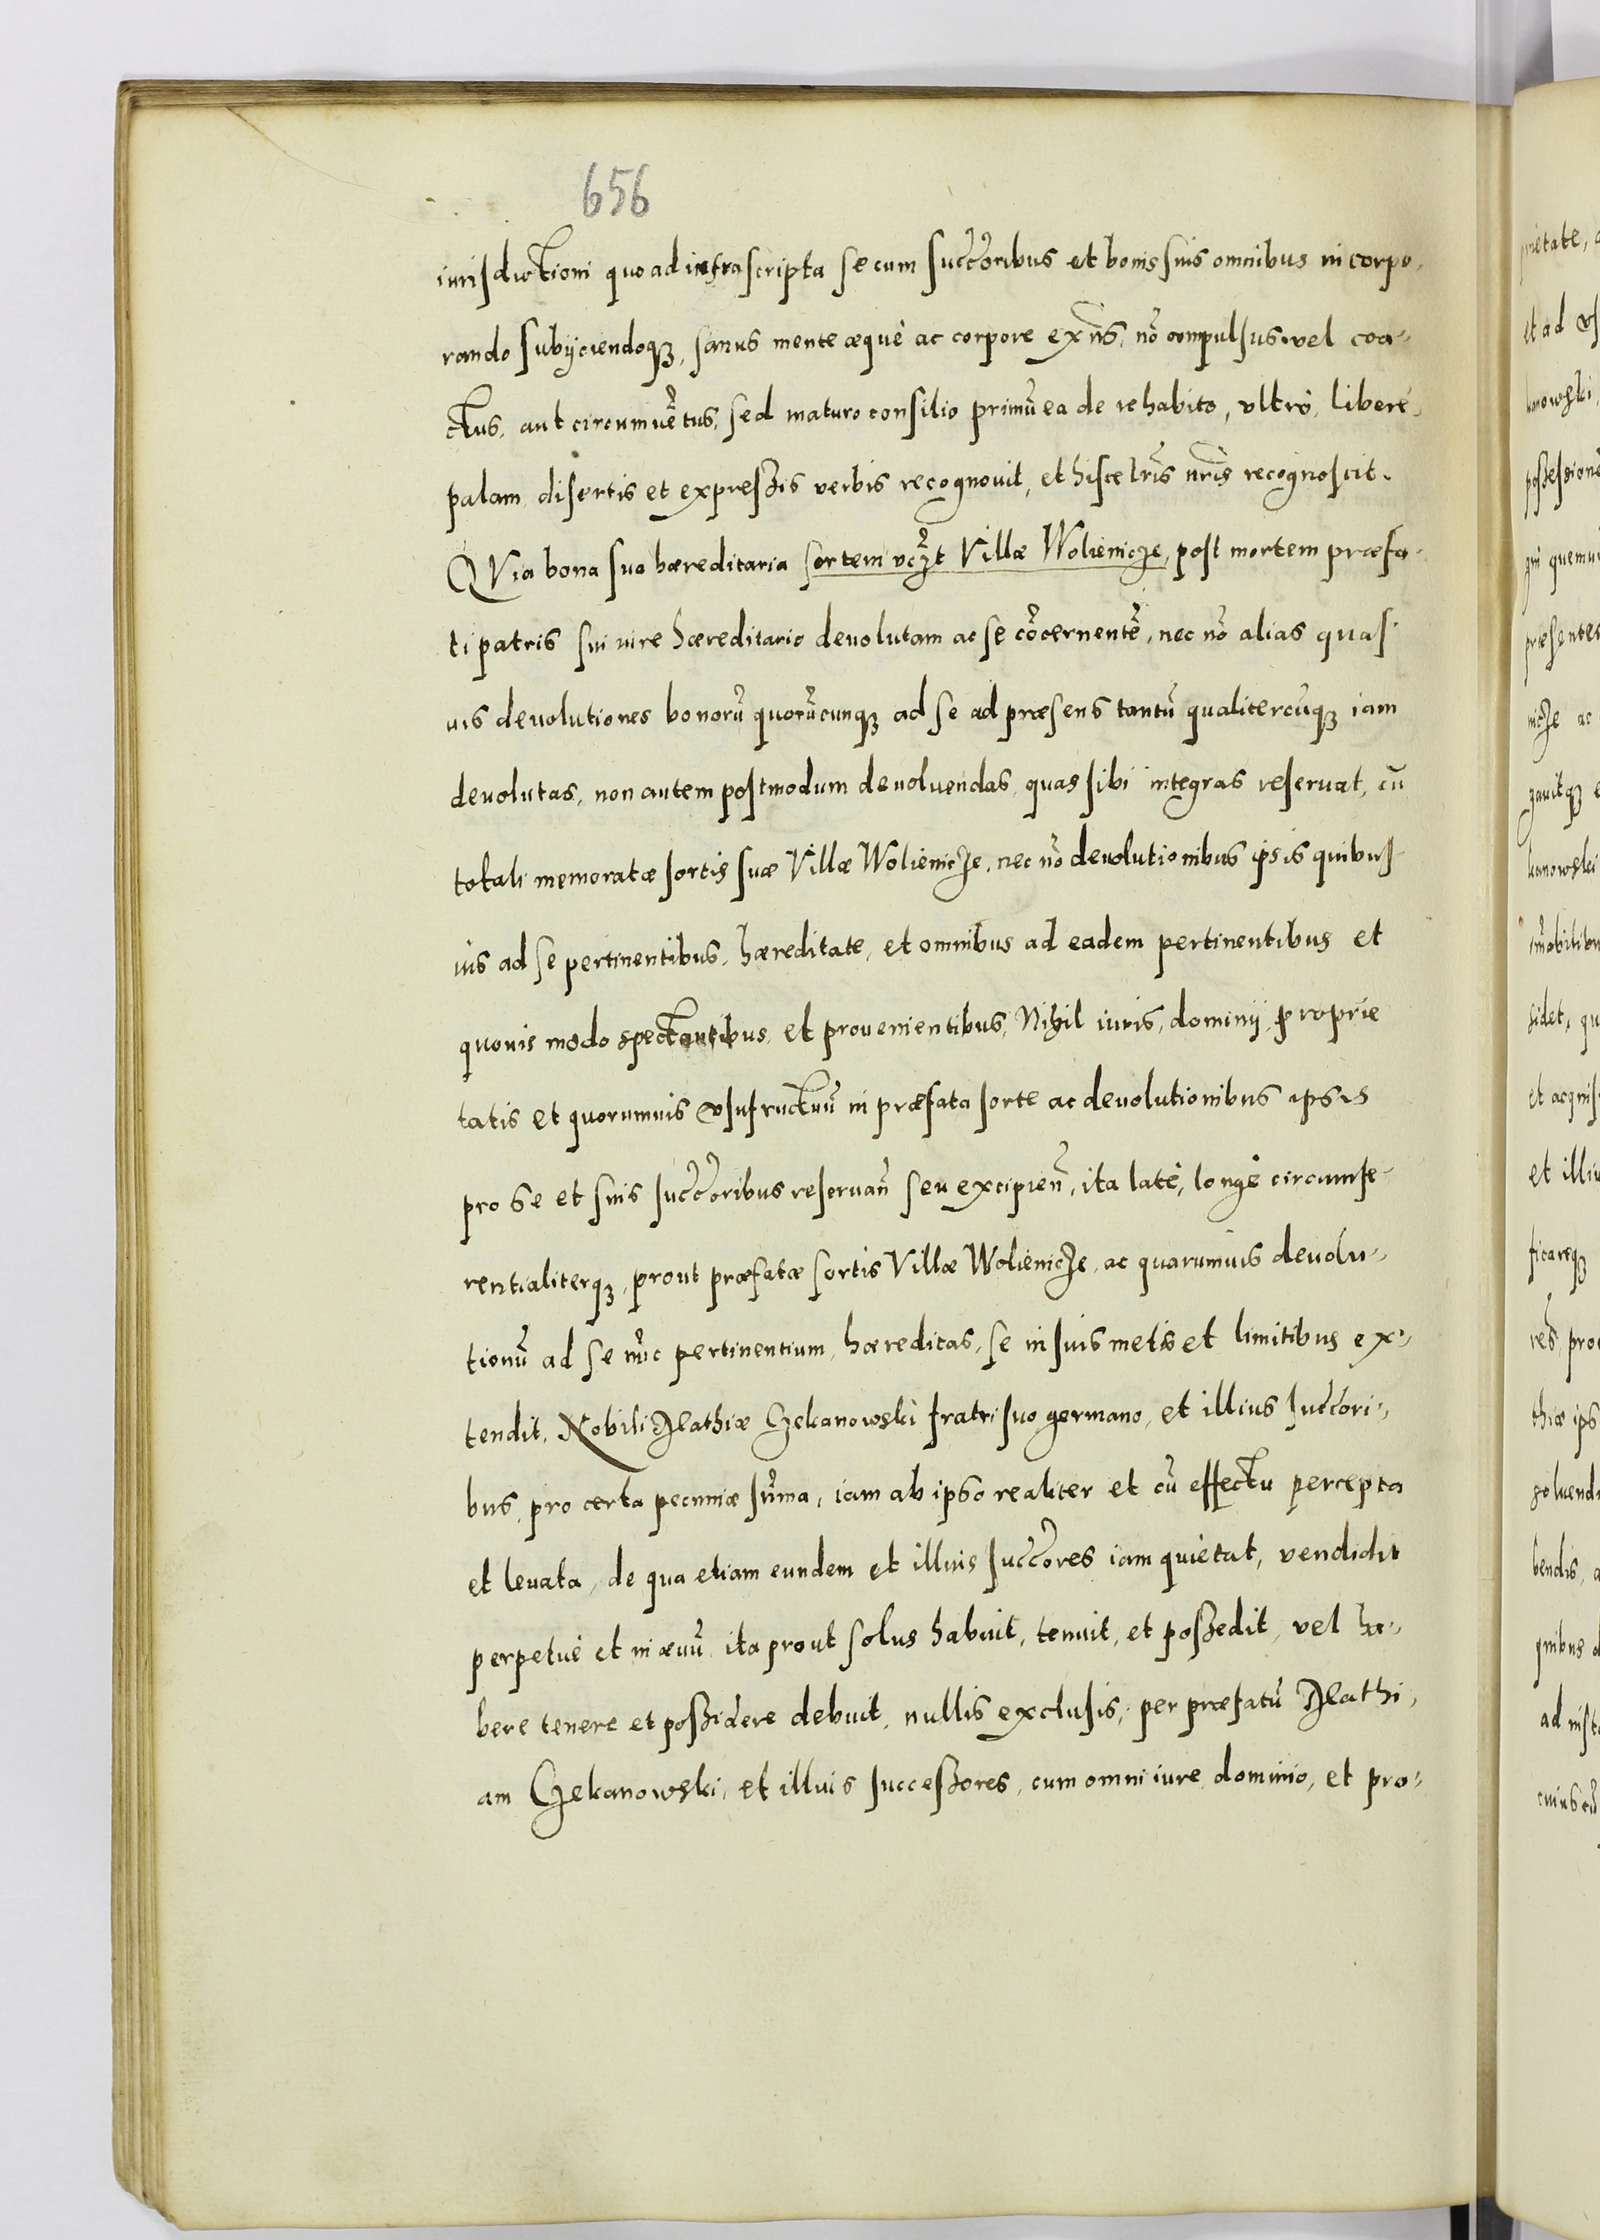 656
iurisdictioni quo ad infrascripta se cum succ̃oribus et bonis suis omnibus incorpo,
rando subijciendoqꝫ, sanus mente æquè ac corpore exñs, nõ compulsus vel coa-
ctus, aut circumuẽtus, sed maturo consilio primũ ea de re habito, vltrò, liberè,
palam, disertis et expreßis verbis recognouit, et hisce lr̃is nr̃is recognoscit.
QVia bona sua hæreditaria sortem vcꝫt Villæ Wolienicze, post mortem præfa-
ti patris sui iure hæreditario deuolutam ac se cõcernentẽ, nec nõ alias quas
uis deuolutiones bonorũ quorũcunqꝫ ad se ad præsens tantũ qualitercũqꝫ iam
deuolutas, non autem postmodum deuoluendas, quas sibi integras reseruat, cũ
totali memoratæ sortis suæ Villæ Wolienicze, nec nõ deuolutionibus ipsis quibus
uis ad se pertinentibus, hæreditate, et omnibus ad eadem pertinentibus et
quouis modo spectantibus, et prouenientibus, Nihil iuris, dominij, proprie
tatis et quorumuis vsufructuũ in præfata sorte ac deuolutionibus ipsis
pro se et suis succ̃oribus reseruañ seu excipieñ, ita latè, longè circumfe-
rentialiterqꝫ, prout præfatæ sortis Villæ Wolienicze, ac quarumuis deuolu-
tionũ ad se nũc pertinentium, hæreditas, se in suis metis et limitibus ex-
tendit, Nobili Mathiæ Czekanowski fratri suo germano, et illius succ̃ori-
bus, pro certa pecuniæ sum̃a, iam ab ipso realiter et cũ effectu percepta
et leuata, de qua etiam eundem et illius succ̃ores iam quietat, vendidit
perpetuè et in æuũ, ita prout solus habuit, tenuit, et poßedit, vel ha-
bere tenere et poßidere debuit, nullis exclusis, per præfatũ Mathi,
am Czekanowski, et illius succeßores, cum omni iure, dominio, et pro-